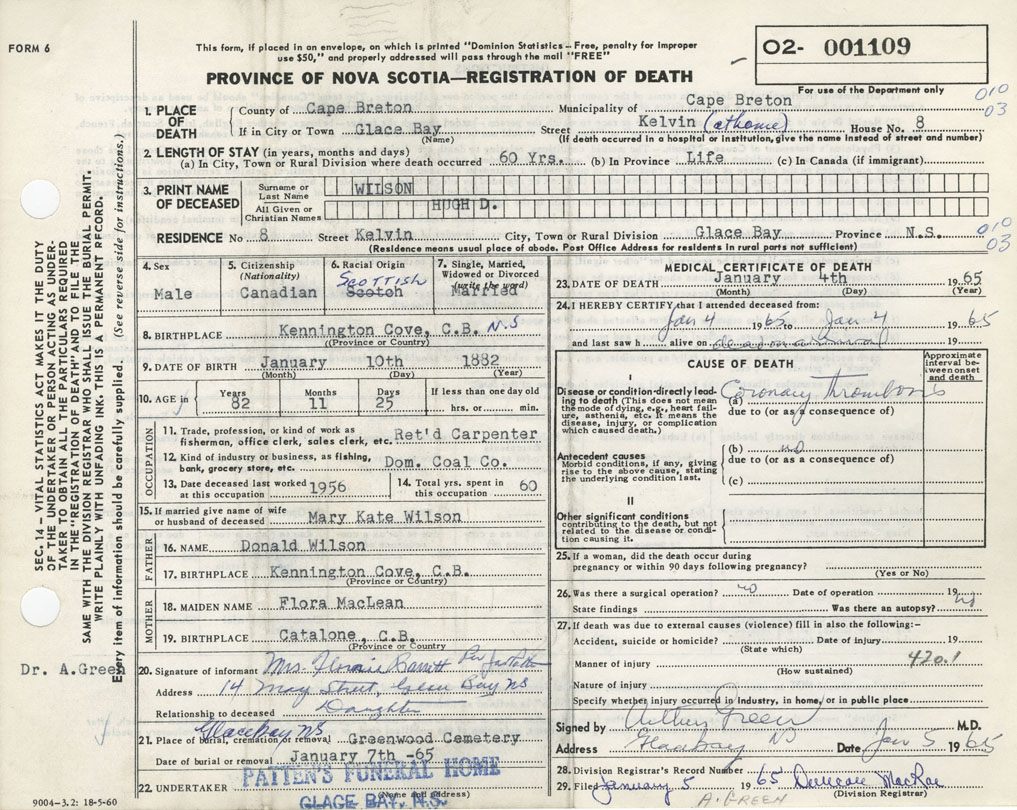 FORM 6
This form, if placed in an envelope, on which is printed "Dominion Statistics – Free, penalty for improper
use $50," and properly addressed will pass through the mail "FREE"
O2- 001109
PROVINCE OF NOVA SCOTIA—REGISTRATION OF DEATH
For use of the Department only
010
03
1. PLACE OF DEATH
County of Cape Breton Municipality of Cape Breton
If in City or Town Glace Bay Street Kelvin (at home) House No. 8
(Name) (If death occurred in a hospital or institution, give the name instead of street and number)
2. LENGTH OF STAY (in years, months and days)
(a) In City, Town or Rural Division where death occurred 60 Yrs. (b) In Province Life (c) In Canada (if immigrant)
3. PRINT NAME OF DECEASED
Surname or Last Name WILSON
All Given or Christian Names HUGH D.
RESIDENCE No 8 Street Kelvin City, Town or Rural Division Glace Bay Province N.S.
010
03
(Residence means usual place of abode. Post Office Address for residents in rural parts not sufficient)
4. Sex
Male
5. Citizenship (Nationality)
Canadian
6. Racial Origin
SCOTTISH
Scotch
7. Single, Married, Widowed or Divorced (write the word)
Married
8. BIRTHPLACE Kennington Cove, C.B. N.S
(Province or Country)
9. DATE OF BIRTH January 10th 1882
(Month) (Day) (Year)
10. AGE in
Years Months Days If less than one day old
82 11 25 hrs. or min.
OCCUPATION
11. Trade, profession, or kind of work as
fisherman, office clerk, sales clerk, etc. Ret'd Carpenter
12. Kind of industry or business, as fishing,
bank, grocery store, etc. Dom. Coal Co.
13. Date deceased last worked at this occupation 1956
14. Total yrs. spent in this occupation 60
15. If married give name of wife
or husband of deceased Mary Kate Wilson
FATHER
16. NAME Donald Wilson
17. BIRTHPLACE Kennington Cove, C.B.
(Province or Country)
MOTHER
18. MAIDEN NAME Flora MacLean
19. BIRTHPLACE Catalone, C.B.
(Province or Country)
Dr. A.Green
20. Signature of informant Mrs. Florrie Barrett Per
Address 14 May Street, Glace Bay NS
Relationship to deceased Daughter
Glace Bay NS
21. Place of burial, cremation or removal Greenwood Cemetery
Date of burial or removal January 7th -65
22. UNDERTAKER
(Name and address)
PATTEN'S FUNERAL HOME
GLACE BAY, N.S.
MEDICAL CERTIFICATE OF DEATH
23. DATE OF DEATH January 4th 1965
(Month) (Day) (Year)
24. I HEREBY CERTIFY that I attended deceased from:
Jan 4 1965 to Jan 4 1965
and last saw h alive on 19
CAUSE OF DEATH
Approximate interval between onset and death
I
Disease or condition directly leading to death (This does not mean the mode of dying, e.g., heart failure, asthenia, etc. It means the disease, injury, or complication which caused death.)
(a) Coronary thrombosis
due to (or as a consequence of)
Antecedent causes
Morbid conditions, if any, giving rise to the above cause, stating the underlying condition last.
(b)
due to (or as a consequence of)
(c)
II
Other significant conditions
contributing to the death, but not related to the disease or condition causing it.
25. If a woman, did the death occur during
pregnancy or within 90 days following pregnancy?
(Yes or No)
26. Was there a surgical operation? no Date of operation 19
State findings Was there an autopsy? no
27. If death was due to external causes (violence) fill in also the following:-
Accident, suicide or homicide? Date of injury 19
(State which)
Manner of injury 420.1
(How sustained)
Nature of injury
Specify whether injury occurred in industry, in home, or in public place
Signed by Arthur Green M.D.
Address Glace Bay NS Date Jan 5 1965
28. Division Registrar's Record Number
29. Filed January 5 1965 MacRae
(Division Registrar)
A. GREEN
SEC. 14 – VITAL STATISTICS ACT MAKES IT THE DUTY
OF THE UNDERTAKER OR PERSON ACTING AS UNDER-
TAKER TO OBTAIN ALL THE PARTICULARS REQUIRED
IN THE "REGISTRATION OF DEATH" AND TO FILE THE
SAME WITH THE DIVISION REGISTRAR WHO SHALL ISSUE THE BURIAL PERMIT.
WRITE PLAINLY WITH UNFADING INK. THIS IS A PERMANENT RECORD.
Every item of information should be carefully supplied. (See reverse side for instructions.)
9004-3.2: 18-5-60